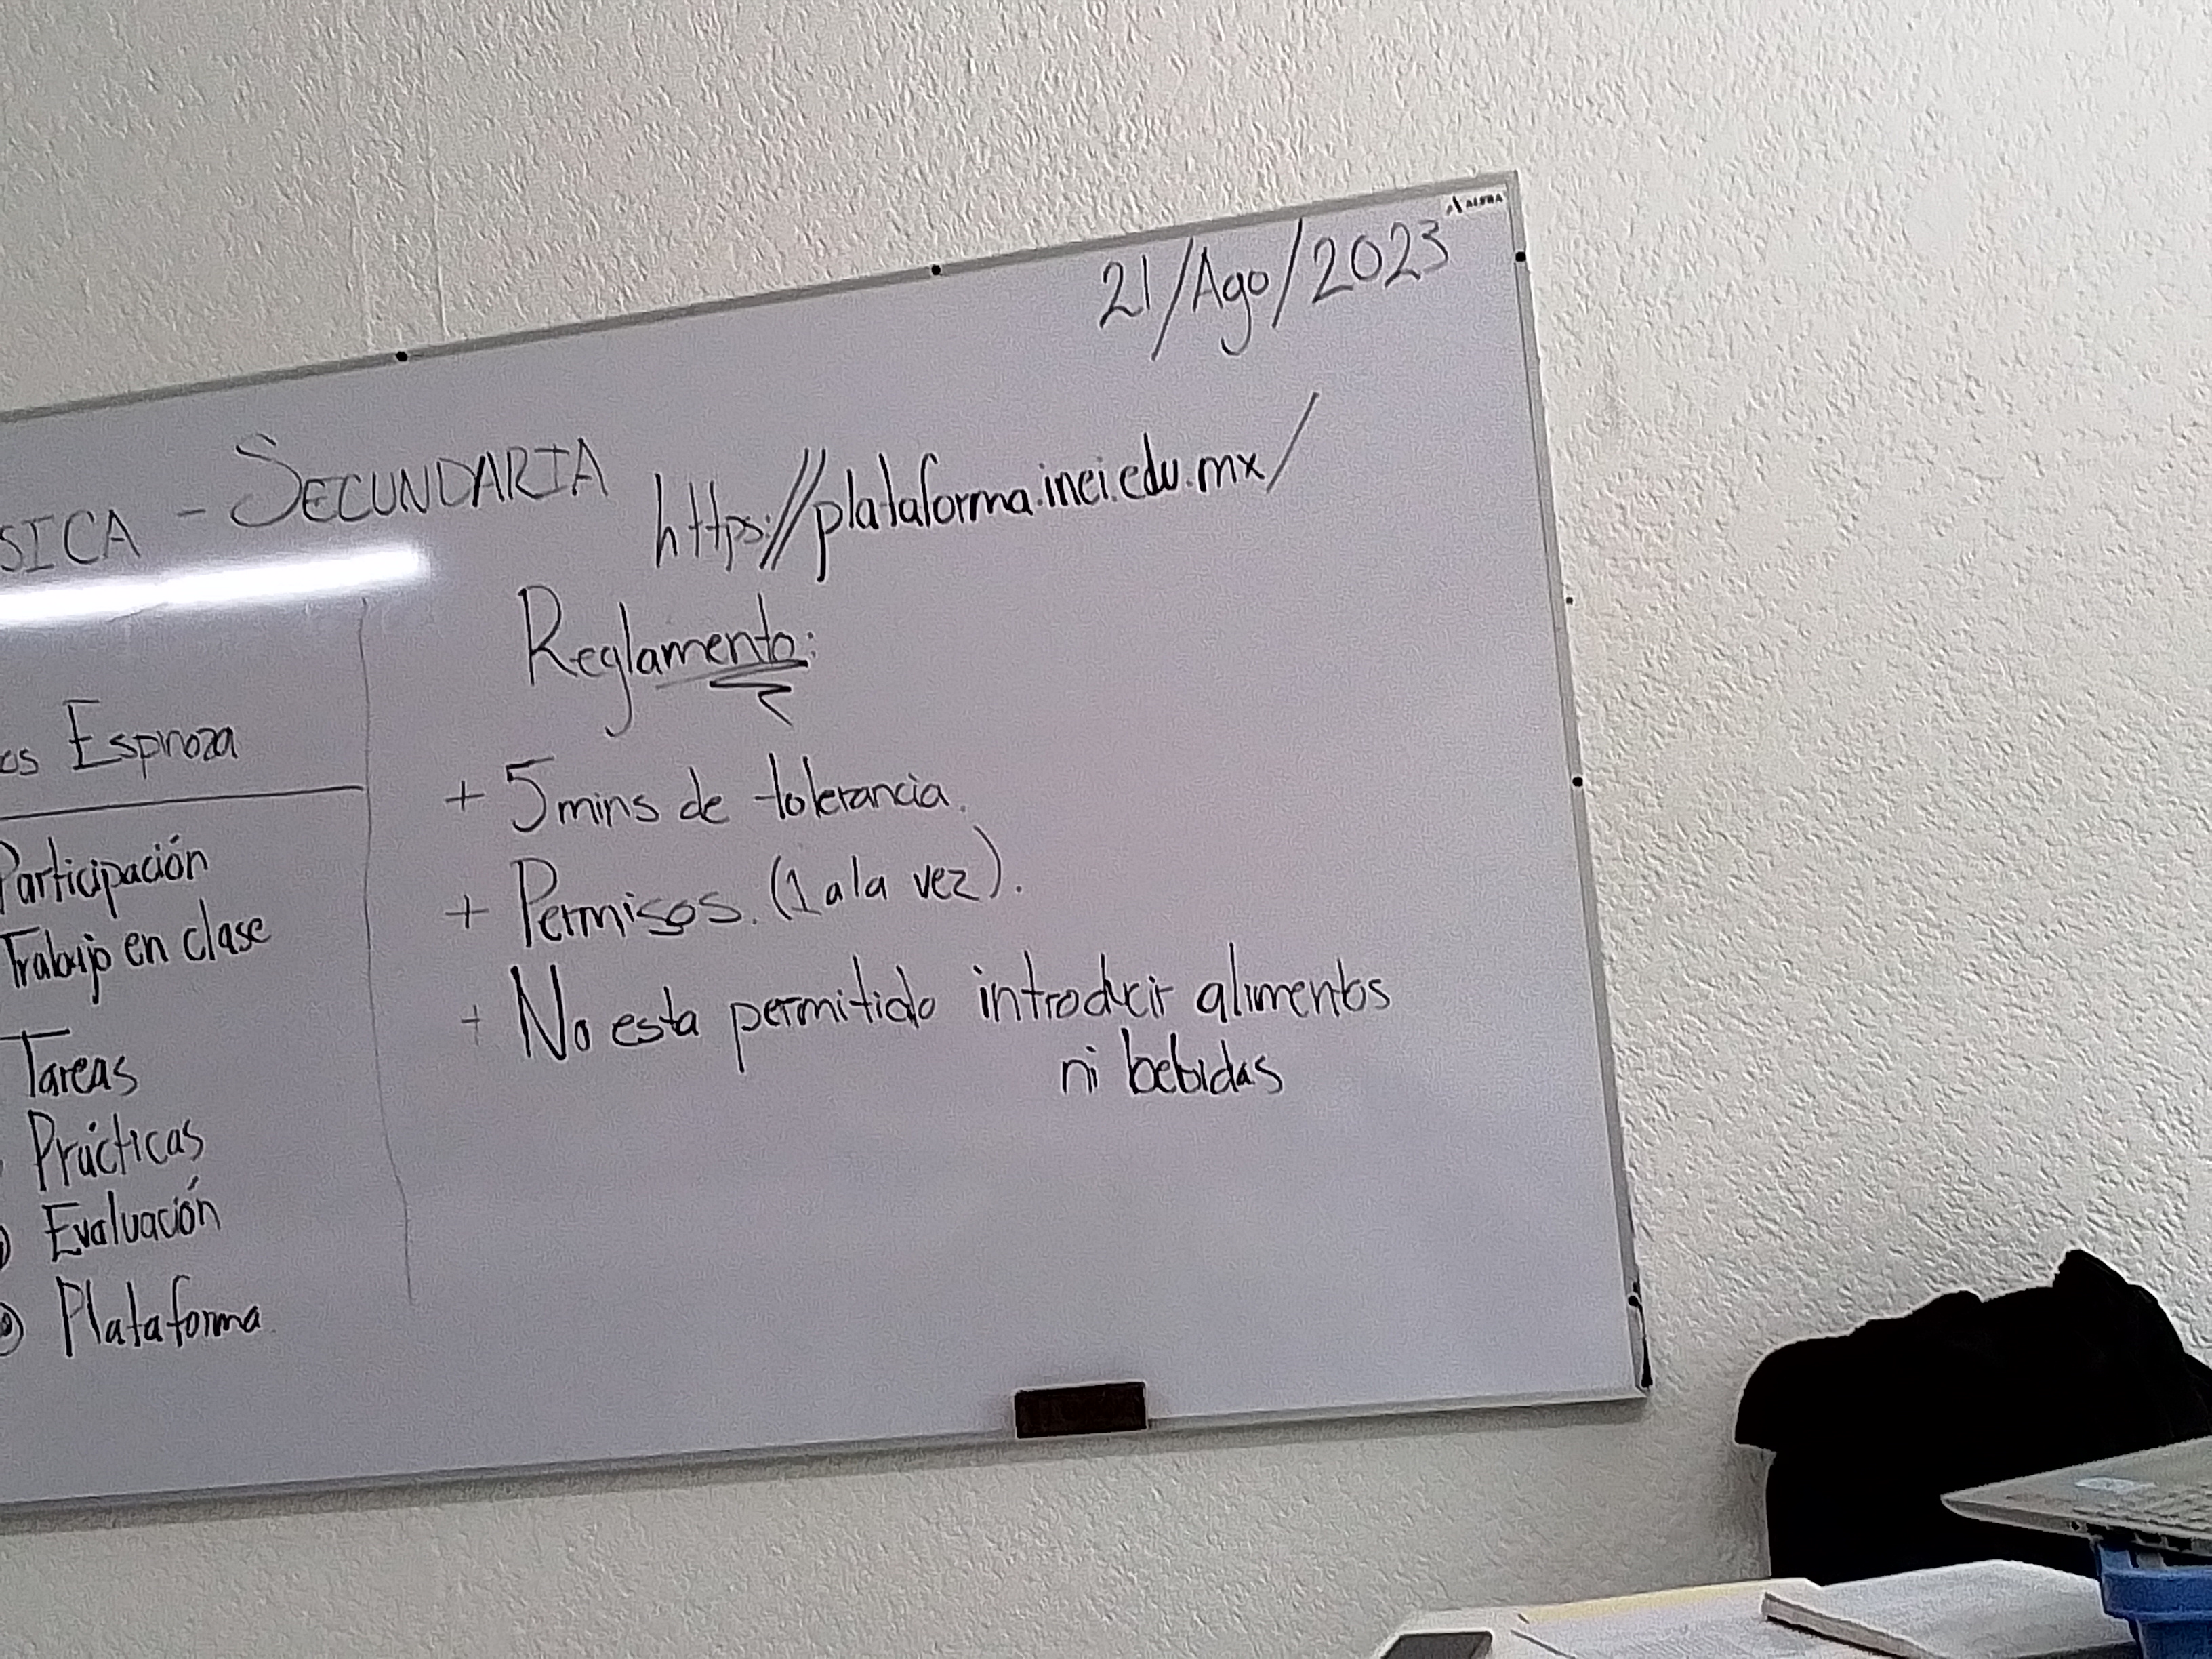 ALFRA
21/Ago/2023
SICA - SECUNDARIA
https://plataforma.inei.edu.mx/
Reglamento:
os Espinoza
+ 5 mins de tolerancia.
+ Permisos. (1 a la vez).
+ No esta permitido introducir alimentos
ni bebidas
Participación
Trabajo en clase
Tareas
Prácticas
Evaluación
Plataforma